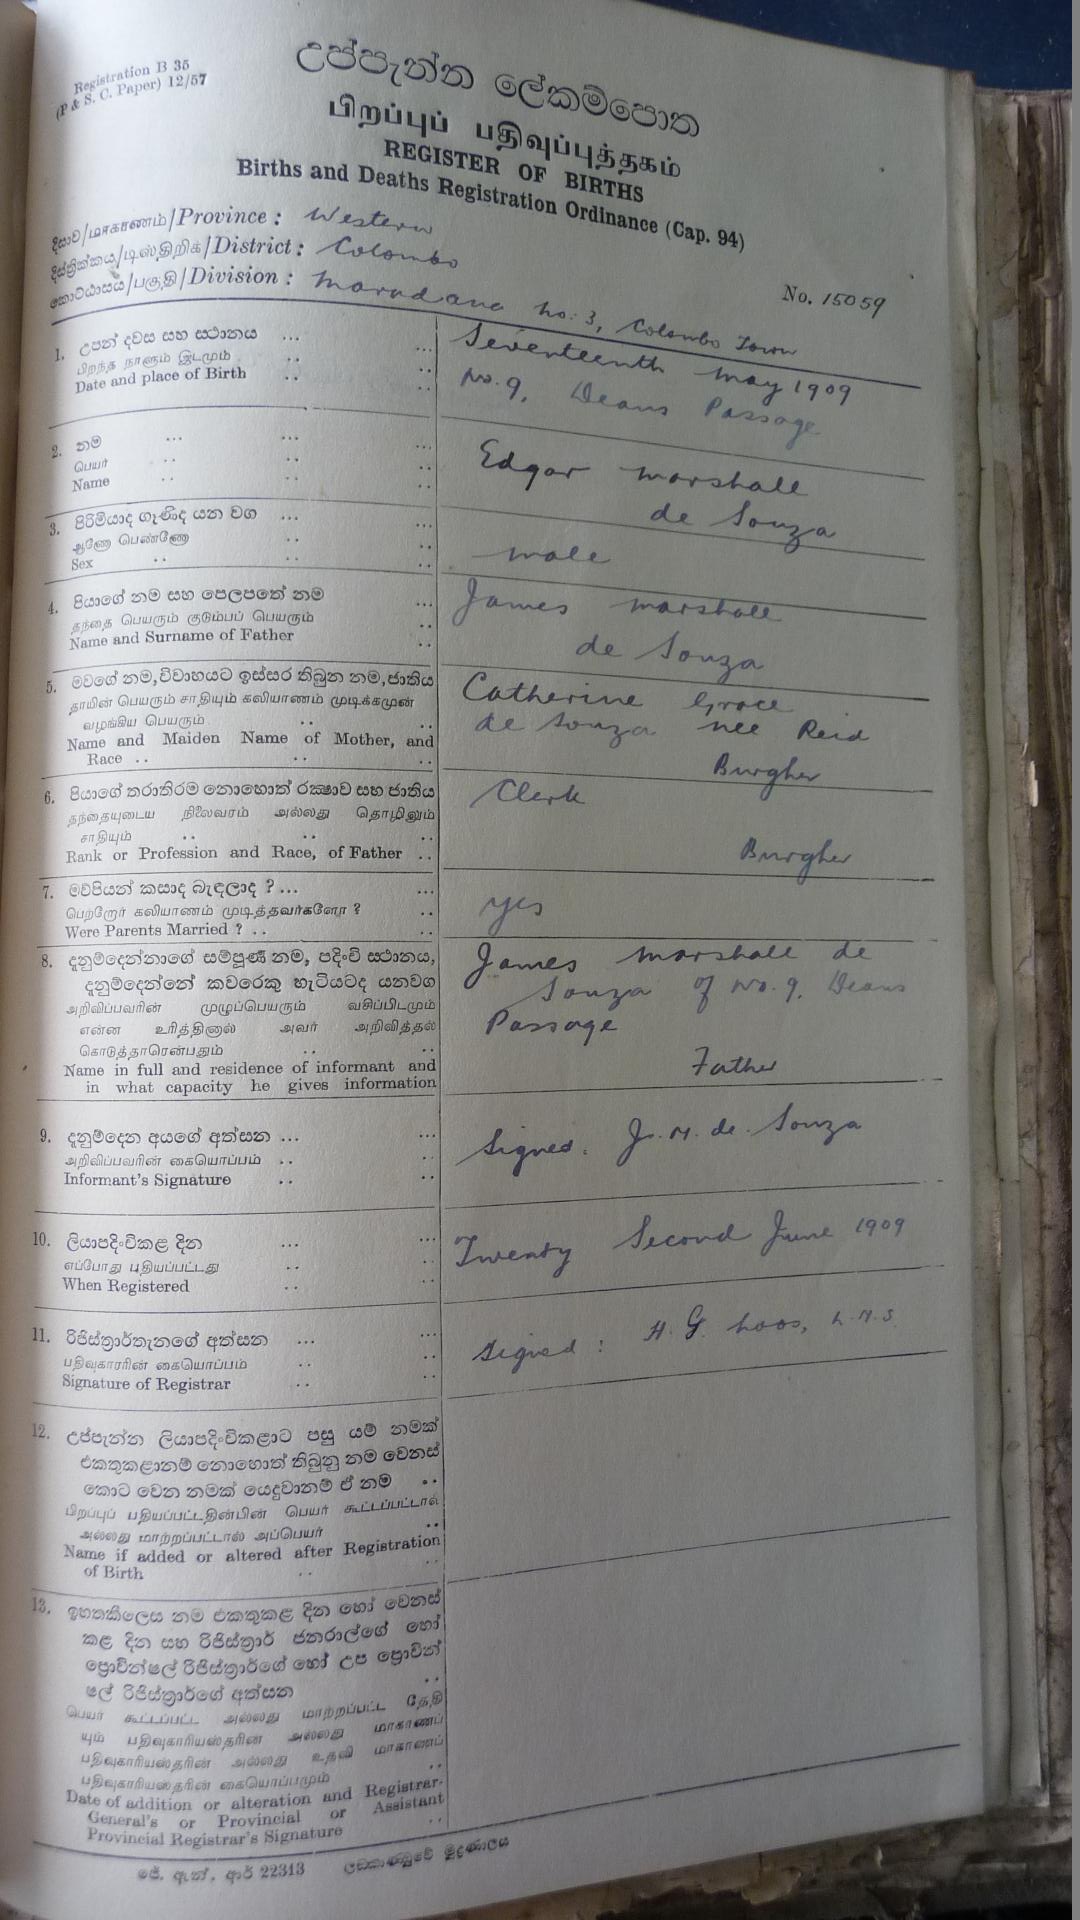 Registration B 35
(P & S. C. Paper) 12/57
උප්පැන්න ලේකම්පොත
பிறப்புப் பதிவுப்புத்தகம்
REGISTER OF BIRTHS
Births and Deaths Registration Ordinance (Cap. 94)
දිසාව/மாகாணம்/Province : Western
දිස්ත්‍රික්කය/டிஸ்திறிக்/District : Colombo
කොට්ඨාසය/பகுதி/Division : Maradana No: 3, Colombo Town
No. 15059
1. උපන් දවස සහ ස්ථානය ... ...
பிறந்த நாளும் இடமும் .. ..
Date and place of Birth .. ..
Seventeenth May 1909
No. 9, Deans Passage
2. නම ... ... ...
பெயர் .. .. ..
Name .. .. ..
Edgar Marshall
de Souza
3. පිරිමියාද ගෑණිද යන වග ... ...
ஆணோ பெண்ணோ .. ..
Sex .. .. ..
male
4. පියාගේ නම සහ පෙලපතේ නම ...
தந்தை பெயரும் குடும்பப் பெயரும் ..
Name and Surname of Father ..
James Marshall
de Souza
5. මවගේ නම, විවාහයට ඉස්සර තිබුන නම, ජාතිය
தாயின் பெயரும் சாதியும் கலியாணம் முடிக்கமுன்
வழங்கிய பெயரும் .. ..
Name and Maiden Name of Mother, and
Race .. .. ..
Catherine Grace
de Souza nee Reid
Burgher
6. පියාගේ තරාතිරම නොහොත් රක්‍ෂාව සහ ජාතිය
தந்தையுடைய நிலைவரம் அல்லது தொழிலும்
சாதியும் .. .. ..
Rank or Profession and Race, of Father ..
Clerk
Burgher
7. මව්පියන් කසාද බැඳලාද ? ... ...
பெற்றோர் கலியாணம் முடித்தவர்களோ ? ..
Were Parents Married ? .. ..
yes
8. දැනුම්දෙන්නාගේ සම්පූර්ණ නම, පදිංචි ස්ථානය,
දැනුම්දෙන්නේ කවරෙකු හැටියටද යනවග
அறிவிப்பவரின் முழுப்பெயரும் வசிப்பிடமும்
என்ன உரித்தினால் அவர் அறிவித்தல்
கொடுத்தாரென்பதும் .. ..
Name in full and residence of informant and
in what capacity he gives information
James Marshall de
Souza of No. 9, Deans
Passage
Father
9. දැනුම්දෙන අයගේ අත්සන ... ...
அறிவிப்பவரின் கையொப்பம் .. ..
Informant's Signature .. ..
Signed. J. M. de Souza
10. ලියාපදිංචිකළ දින ... ...
எப்போது பதியப்பட்டது .. ..
When Registered .. ..
Twenty Second June 1909
11. රිජිස්ත්‍රාර්තැනගේ අත්සන ... ...
பதிவுகாரரின் கையொப்பம் .. ..
Signature of Registrar .. ..
Signed : H. G. Loos, L.M.S.
12. උප්පැන්න ලියාපදිංචිකළාට පසු යම් නමක්
එකතුකළානම් නොහොත් තිබුනු නම වෙනස්
කොට වෙන නමක් යෙදුවානම් ඒ නම ..
பிறப்புப் பதியப்பட்டதின்பின் பெயர் கூட்டப்பட்டால்
அல்லது மாற்றப்பட்டால் அப்பெயர் ..
Name if added or altered after Registration
of Birth .. ..
13. ඉහතකීලෙස නම එකතුකළ දින හෝ වෙනස්
කළ දින සහ රිජිස්ත්‍රාර් ජනරාල්ගේ හෝ
ප්‍රොවින්ෂල් රිජිස්ත්‍රාර්ගේ හෝ උප ප්‍රොවින්
ෂල් රිජිස්ත්‍රාර්ගේ අත්සන ..
பெயர் கூட்டப்பட்ட அல்லது மாற்றப்பட்ட தேதி
யும் பதிவுகாரியஸ்தரின் அல்லது மாகாணப்
பதிவுகாரியஸ்தரின் அல்லது உதவி மாகாணப்
பதிவுகாரியஸ்தரின் கையொப்பமும் ..
Date of addition or alteration and Registrar-
General's or Provincial or Assistant
Provincial Registrar's Signature ..
ජේ. ඇන්. ආර් 22313 ලංකාණ්ඩුවේ මුද්‍රණාලය